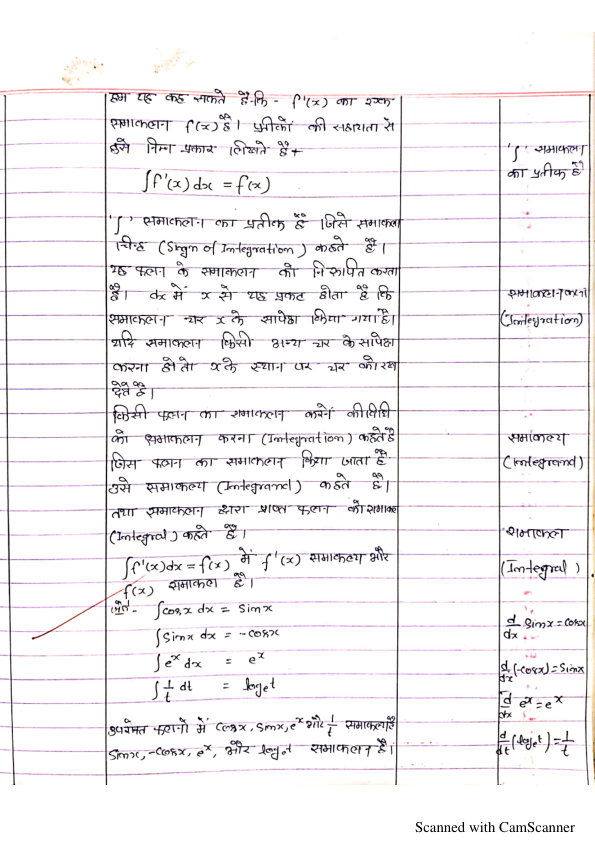 हम यह कह सकते हैं कि - f'(x) का एक
समाकलन f(x) है। प्रतीकों की सहायता से
इसे निम्न प्रकार लिखते हैं -
∫f'(x) dx = f(x)
'∫' समाकलन का प्रतीक है जिसे समाकलन
चिन्ह (Sign of Integration) कहते हैं।
यह फलन के समाकलन को निरूपित करता
है। dx में x से यह प्रकट होता है कि
समाकलन चर x के सापेक्ष किया गया है।
यदि समाकलन किसी अन्य चर के सापेक्ष
करना हो तो x के स्थान पर चर को रख
देते है।
किसी फलन का समाकलन करने की विधि
को समाकलन करना (Integration) कहते है
जिस फलन का समाकलन किया जाता है
उसे समाकल्य (Integrand) कहते हैं।
तथा समाकलन द्वारा प्राप्त फलन को समाकल
(Integral) कहते हैं।
∫f'(x)dx = f(x) में f'(x) समाकल्य और
f(x) समाकल है।
जैसे - ∫cosx dx = sinx
∫sinx dx = -cosx
∫eˣ dx = eˣ
∫1/t dt = logₑt
उपरोक्त फलनो में cosx, sinx, eˣ और 1/t समाकल्य है
sinx, -cosx, eˣ, और logₑt समाकलन है।
'∫' समाकलन
का प्रतीक है
समाकलन करना
(Integration)
समाकल्य
(Integrand)
समाकल
(Integral)
d/dx sinx = cosx
d/dx (-cosx) = sinx
d/dx eˣ = eˣ
d/dt (logₑt) = 1/t
Scanned with CamScanner